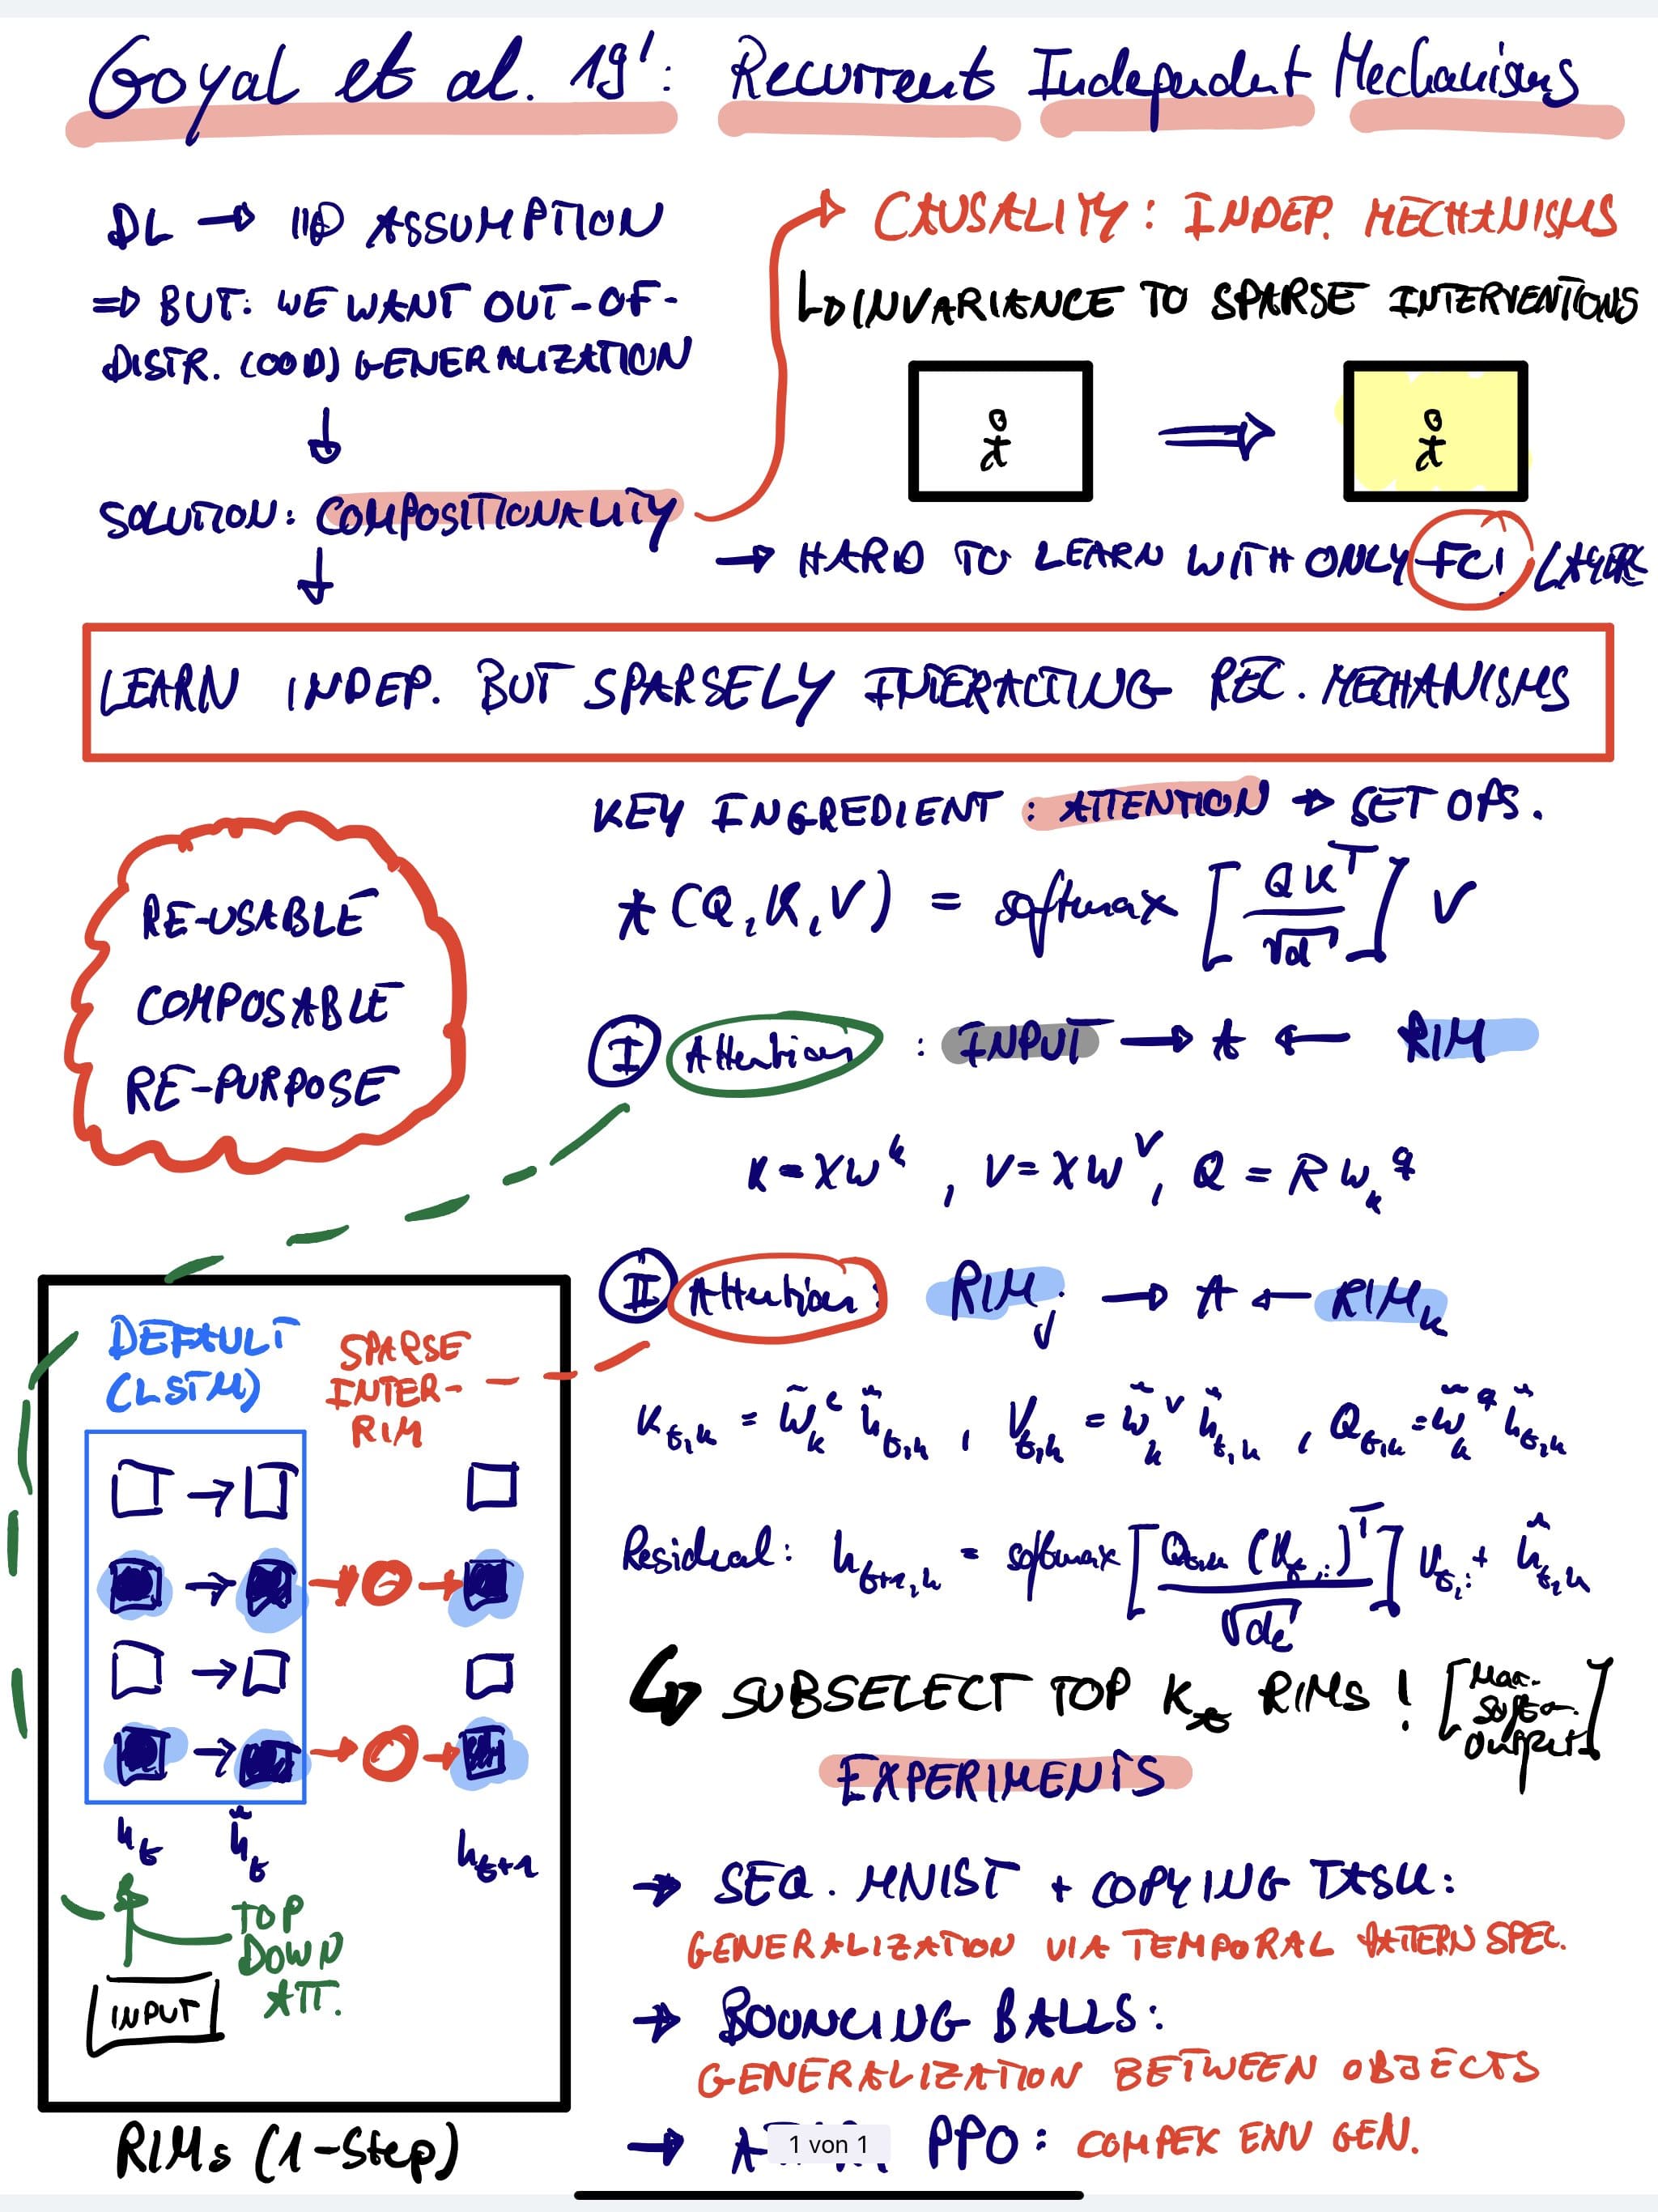 Goyal et al. 19': Recurrent Independent Mechanisms
DL → IID ASSUMPTION
⇒ BUT: WE WANT OUT-OF-
DISTR. (OOD) GENERALIZATION
↓
SOLUTION: COMPOSITIONALITY
↓
→ CAUSALITY: INDEP. MECHANISMS
↳ INVARIANCE TO SPARSE INTERVENTIONS
⇒
→ HARD TO LEARN WITH ONLY FC! LAYER
LEARN INDEP. BUT SPARSELY INTERACTING REC. MECHANISMS
RE-USABLE
COMPOSABLE
RE-PURPOSE
KEY INGREDIENT: ATTENTION → SET OPS.
A(Q,K,V) = softmax [QK^T / √d] V
I Attention: INPUT → A ← RIM
K = XW^k, V = XW^v, Q = RW_k^q
II Attention: RIM_j → A ← RIM_k
K_{t,k} = W̃_k^e h̃_{t,k}, V_{t,k} = W̃_k^v h̃_{t,k}, Q_{t,k} = W̃_k^q h̃_{t,k}
Residual: h_{t+1,k} = softmax [Q_{t,k} (K_{t,:})^T / √d_e] V_{t,:} + h̃_{t,k}
↳ SUBSELECT TOP K_A RIMS! [
softm.
output]
DEFAULT
(LSTM)
SPARSE
INTER-
RIM
h_t h̃_t h_{t+1}
TOP
DOWN
ATT.
INPUT
RIMs (1-Step)
EXPERIMENTS
→ SEQ. MNIST + COPYING TASK:
GENERALIZATION VIA TEMPORAL PATTERN SPEC.
→ BOUNCING BALLS:
GENERALIZATION BETWEEN OBJECTS
→ PPO: COMPEX ENV GEN.
1 von 1